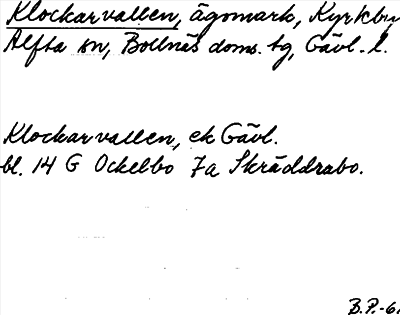 Klockarvallen, ägomark, Kyrkby
Alfta sn, Bollnäs doms. tg, Gävl. l.
Klockarvallen, ek Gävl.
bl. 14 G Ockelbo 7a Skräddrabo.
B.P.-6.